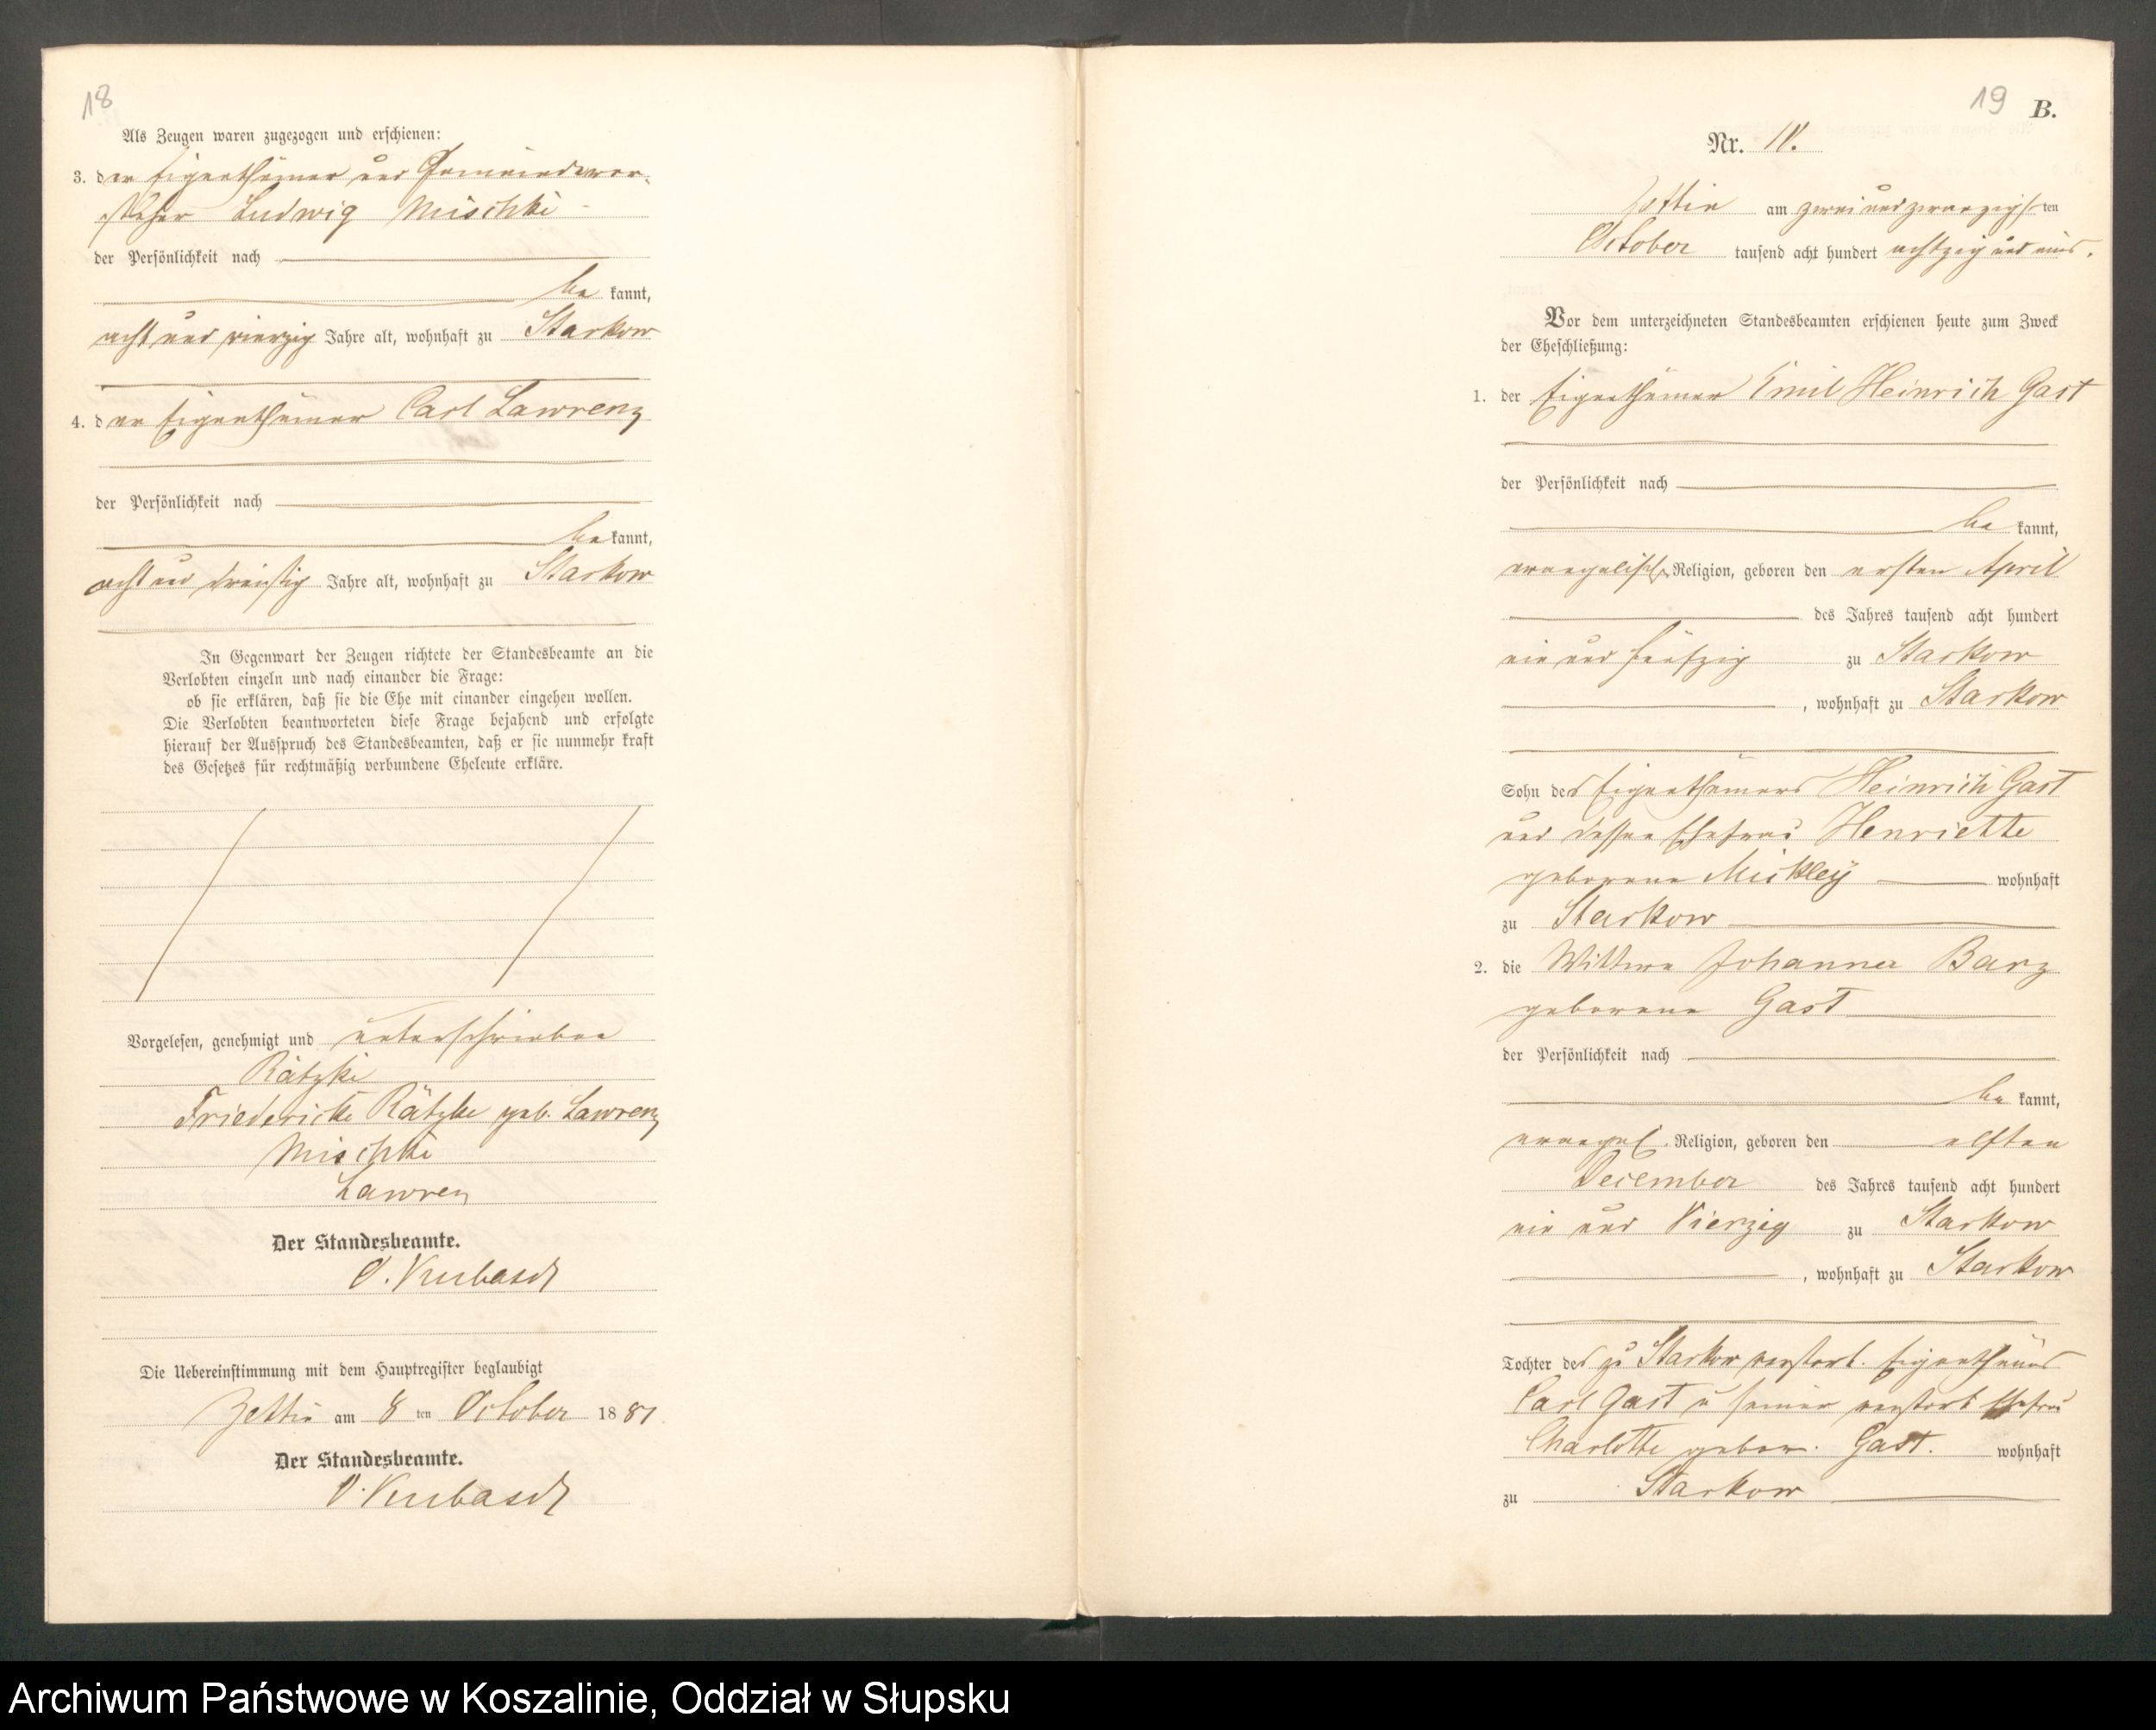 18
Als Zeugen waren zugezogen und erschienen:
3. der Eigenthümer und Gemeindevor-
steher Ludwig Mischke
der Persönlichkeit nach
be kannt,
acht und vierzig Jahre alt, wohnhaft zu Starkow
4. der Eigenthümer Carl Lawrenz
der Persönlichkeit nach
be kannt,
acht und dreißig Jahre alt, wohnhaft zu Starkow
In Gegenwart der Zeugen richtete der Standesbeamte an die
Verlobten einzeln und nach einander die Frage:
ob sie erklären, daß sie die Ehe mit einander eingehen wollen.
Die Verlobten beantworteten diese Frage bejahend und erfolgte
hierauf der Ausspruch des Standesbeamten, daß er sie nunmehr kraft
des Gesetzes für rechtmäßig verbundene Eheleute erkläre.
Vorgelesen, genehmigt und unterschrieben
Rätzke
Friedericke Rätzke geb. Lawrenz
Mischke
Lawrenz
Der Standesbeamte.
Die Uebereinstimmung mit dem Hauptregister beglaubigt
Zettin am 8 ten October 18 81.
Der Standesbeamte.
19 B.
Nr. 11.
Zettin am zwei und zwanzigsten
October tausend acht hundert achtzig und eins.
Vor dem unterzeichneten Standesbeamten erschienen heute zum Zweck
der Eheschließung:
1. der Eigenthümer Emil Heinrich Gast
der Persönlichkeit nach
be kannt,
evangelischer Religion, geboren den ersten April
des Jahres tausend acht hundert
ein und fünfzig zu Starkow
, wohnhaft zu Starkow
Sohn des Eigenthümers Heinrich Gast
und dessen Ehefrau Henriette
geborene Mickley wohnhaft
zu Starkow
2. die Wittwe Johanna Barz
geborene Gast
der Persönlichkeit nach
be kannt,
evangel. Religion, geboren den elften
December des Jahres tausend acht hundert
ein und Vierzig zu Starkow
, wohnhaft zu Starkow
Tochter des zu Starkow verstorb. Eigenthüms
Carl Gast u seiner verstorb Ehefrau
Charlotte gebor. Gast. wohnhaft
zu Starkow
Archiwum Państwowe w Koszalinie, Oddział w Słupsku